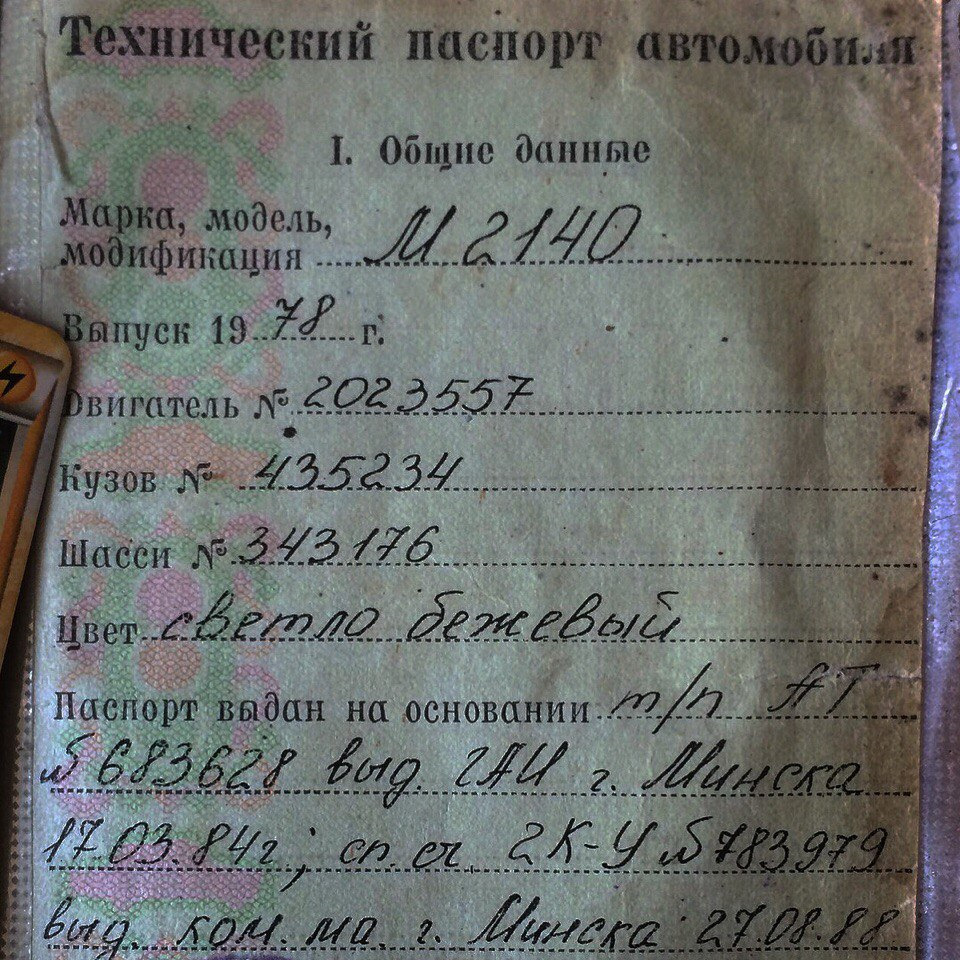 Технический паспорт автомобиля
I. Общие данные
Марка, модель,
модификация М 2140
Выпуск 19 78 г.
Двигатель № 2023557
Кузов № 435234
Шасси № 343176
Цвет светло бежевый
Паспорт выдан на основании т/п АТ
№ 683628 выд. ГАИ г. Минска
17.03.84г; сп. сч. 2К-У № 783979
выд. ком. ма. г. Минска 27.08.88